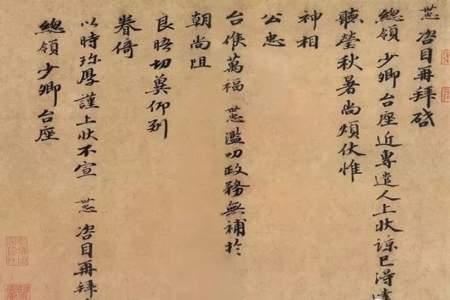 咨目再拜啟
總領少卿台座近專遣人上狀諒已得達
聽瑩秋暑尚煩伏惟
神相
公忠
台候萬福 濫叨政務無補於
朝尚阻
良晤切冀仰副
眷倚
以時珍厚謹上狀不宣 咨目再拜
總領少卿台座